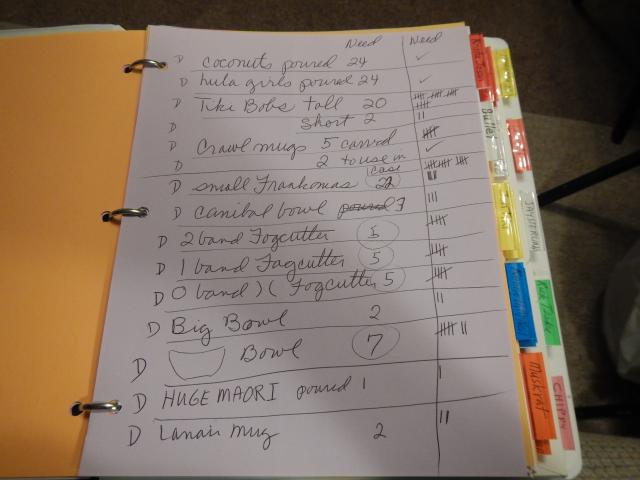 Need Need
D coconuts poured 24 ✓
D hula girls poured 24 ✓
D Tiki Bobs tall 20
D Short 2
D Crawl mugs 5 carved
D 2 to use in case ✓
D small Frankomas 22
D canibal bowl poured 3
D 2 band Fogcutter 5
D 1 band Fagcutter 5
D 0 band )( Fogcutter 5
D Big Bowl 2
D Bowl 7
D HUGE MAORI poured 1
D Lanai mug 2
Muskrat
CHIPPY